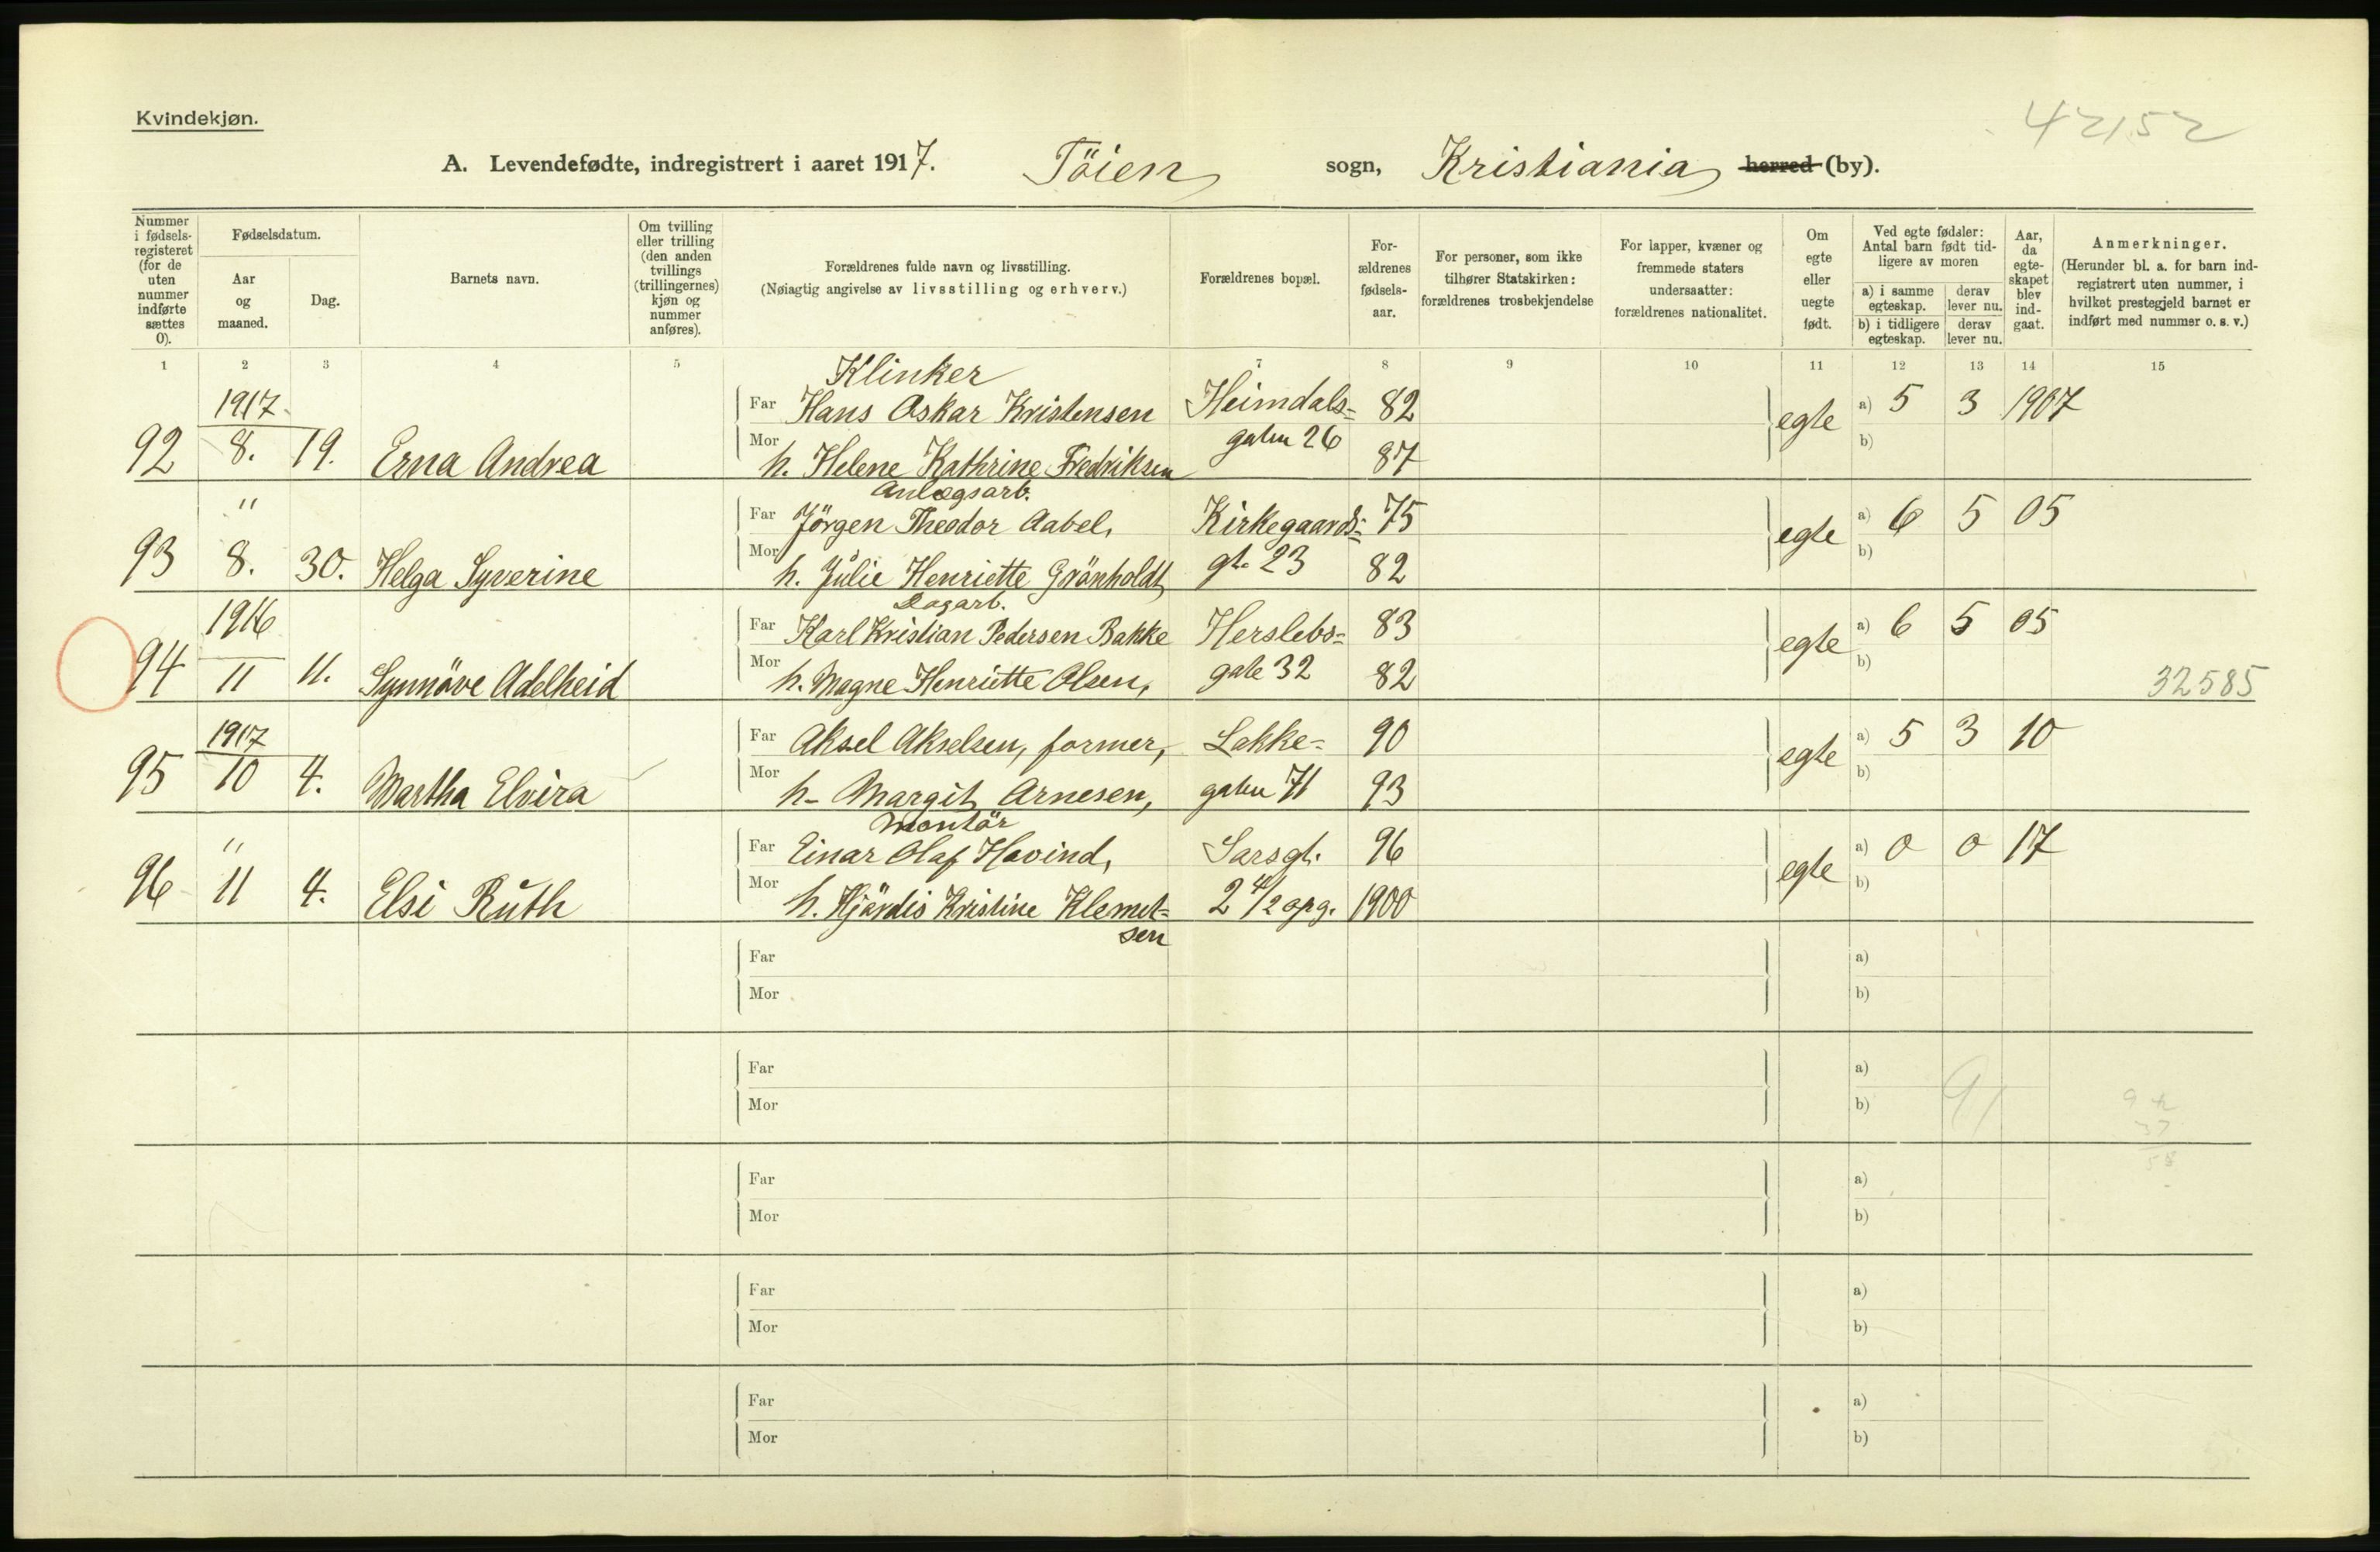 Kvindekjøn.
42152
A. Levendefødte, indregistrert i aaret 1917. Töien sogn, Kristiania herred (by).
Nummer i fødsels-registeret (for de uten nummer indførte sættes 0).
Fødselsdatum.
Aar og maaned.
Dag.
Barnets navn.
Om tvilling eller trilling (den anden tvillings (trillingernes) kjøn og nummer anføres).
Forældrenes fulde navn og livsstilling.
(Nøiagtig angivelse av livsstilling og erhverv.)
Forældrenes bopæl.
For-ældrenes fødsels-aar.
For personer, som ikke tilhører Statskirken: forældrenes trosbekjendelse
For lapper, kvæner og fremmede staters undersaatter: forældrenes nationalitet.
Om egte eller uegte født.
Ved egte fødsler: Antal barn født tid-ligere av moren
a) i samme egteskap.
derav lever nu.
b) i tidligere egteskap.
derav lever nu.
Aar, da egte-skapet blev ind-gaat.
Anmerkninger.
(Herunder bl. a. for barn ind-registrert uten nummer, i hvilket prestegjeld barnet er indført med nummer o. s. v.)
1 2 3 4 5 7 8 9 10 11 12 13 14 15
Klinker
1917 Far Hans Oskar Kristensen Heimdals- 82 egte a) 5 3 1907
92 8. 19. Erna Andrea Mor h. Helene Kathrine Fredriksen gaten 26 87 b)
Anlægsarb.
" Far Jörgen Theodor Aabel, Kirkegaards- 75 egte a) 6 5 05
93 8. 30. Helga Syverine Mor h. Julie Henriette Grönholdt gt. 23 82 b)
Dagarb.
1916 Far Karl Kristian Pedersen Bakke Herslebs- 83 egte a) 6 5 05
94 11 11. Synnöve Adelheid Mor h. Magne Henriette Olsen, gate 32 82 b) 32585
1917 Far Aksel Akselsen, former, Lakke- 90 egte a) 5 3 10
95 10 4. Martha Elvira Mor h. Margit Arnesen, gaten 71 93 b)
Montör
" Far Einar Olaf Havind, Sarsgt. 96 egte a) 0 0 17
96 11 4. Elsi Ruth Mor h. Hjördis Kristine Klemet- 2 4/2 opg. 1900 b)
sen
Far a)
Mor b)
Far a)
Mor b) 91
Far a)
Mor b)
Far a)
Mor b)
Far a)
Mor b)